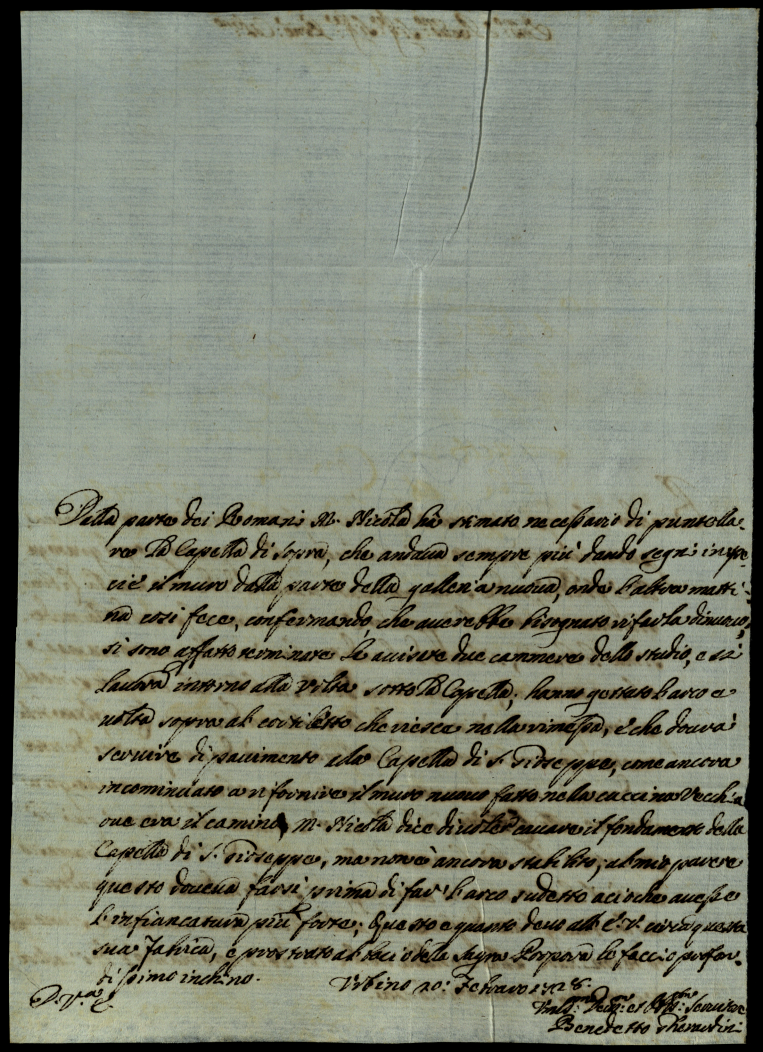 Della parte dei Romani M. Nicola hà stimato necessario di puntella-
re la Capella di sopra, che andava sempre più dando segni in spe-
cie il muro dalla parte della galleria nuova, onde l'altra matti-
na così fece, confermando, che averebbe bisognato rifarla di nuovo,
si sono affatto terminate le avisate due cammere dello studio, e si
lavora intorno alla volta sotto la Capella; hanno gettato l'arco e
volta sopra al cortiletto che riesce nella rimessa, e che dovrà
servire di pavimento alla Capella di S. Gioseppe, come ancora
incominciato a rifornire il muro nuovo fatto nella cuccina Vecchia
ove era il camino, M. Nicola dice di voler cavare il fondamento della
Capella di S. Gioseppe, ma non è ancora stabilito, al mio parere
questo doveva farsi prima di far l'arco sudetto acioche avesse
l'infiancatura più forte; Questo è quanto devo all' E. V. circa questa
sua Fabrica, e prostrato al bacio della Sagra Porpora le faccio profon-
dissimo inchino. Urbino 20: Febraro 1728.
D. V. E.
Um.mo Dev.mo et Obl.mo Servitore
Benedetto Gherardini